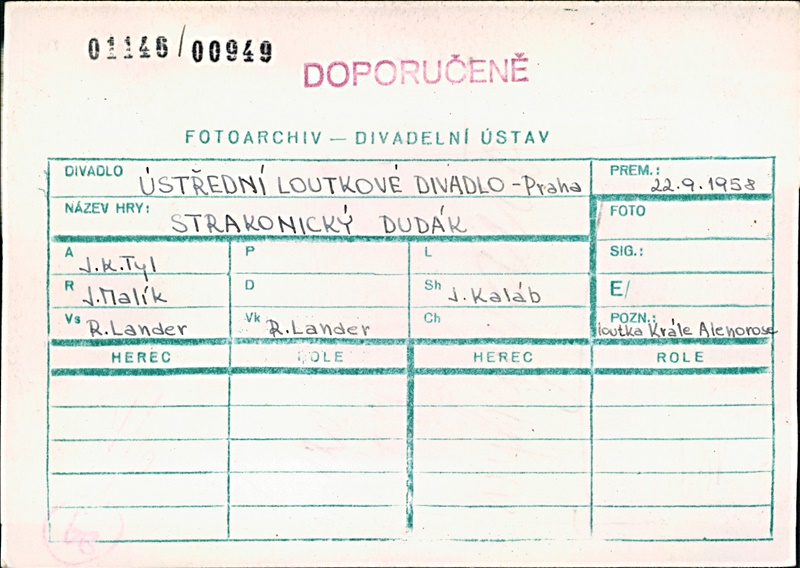 01146/00949
DOPORUČENĚ
FOTOARCHIV — DIVADELNÍ ÚSTAV
DIVADLO ÚSTŘEDNÍ LOUTKOVÉ DIVADLO - Praha
PREM.: 22.9.1958
NÁZEV HRY: STRAKONICKÝ DUDÁK
FOTO
A J.K.Tyl
P
L
SIG.:
R J.Malík
D
Sh J.Kaláb
E/
Vs R.Lander
Vk R.Lander
Ch
POZN.: loutka Krále Alenorose
HEREC
ROLE
HEREC
ROLE